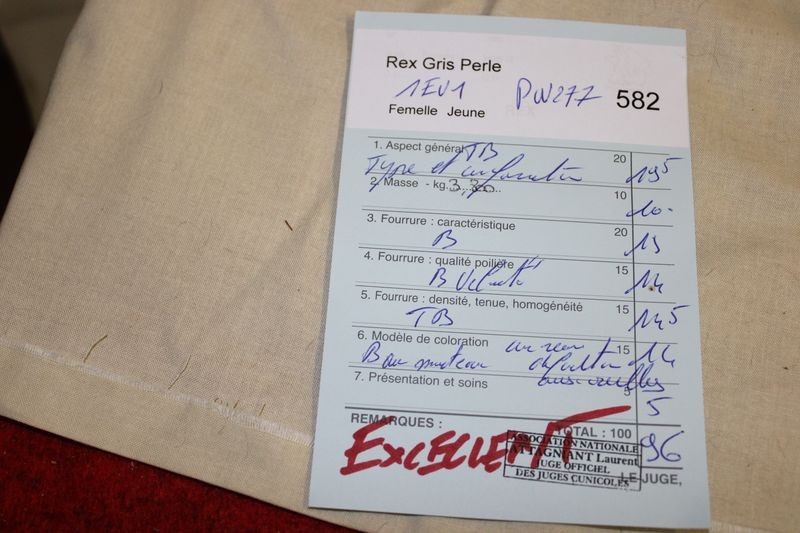 Rex Gris Perle
1EV1 PW277 582
Femelle Jeune
1. Aspect général TB 20
Type et conformation 19,5
2. Masse - kg. 3.30 10
10-
3. Fourrure : caractéristique 20
B 19
4. Fourrure : qualité poilière 15
B Velouté 14
5. Fourrure : densité, tenue, homogénéité 15
TB 14,5
6. Modèle de coloration 15
B 14
7. Présentation et soins 5
5
REMARQUES : TOTAL : 100 96
EXCELLENT
ASSOCIATION NATIONALE
ATTAGNANT Laurent
JUGE OFFICIEL
DES JUGES CUNICOLES
LE JUGE,